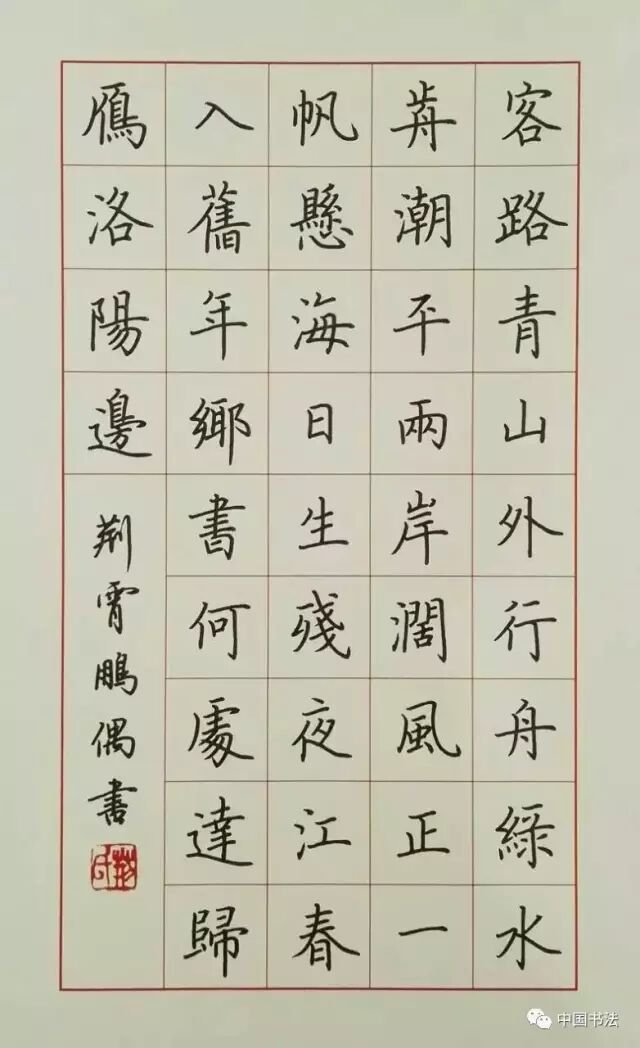 客路青山外行舟綠水
前潮平兩岸濶風正一
帆懸海日生殘夜江春
入舊年鄉書何處達歸
鴈洛陽邊
荆霄鵬偶書
荆氏
中国书法